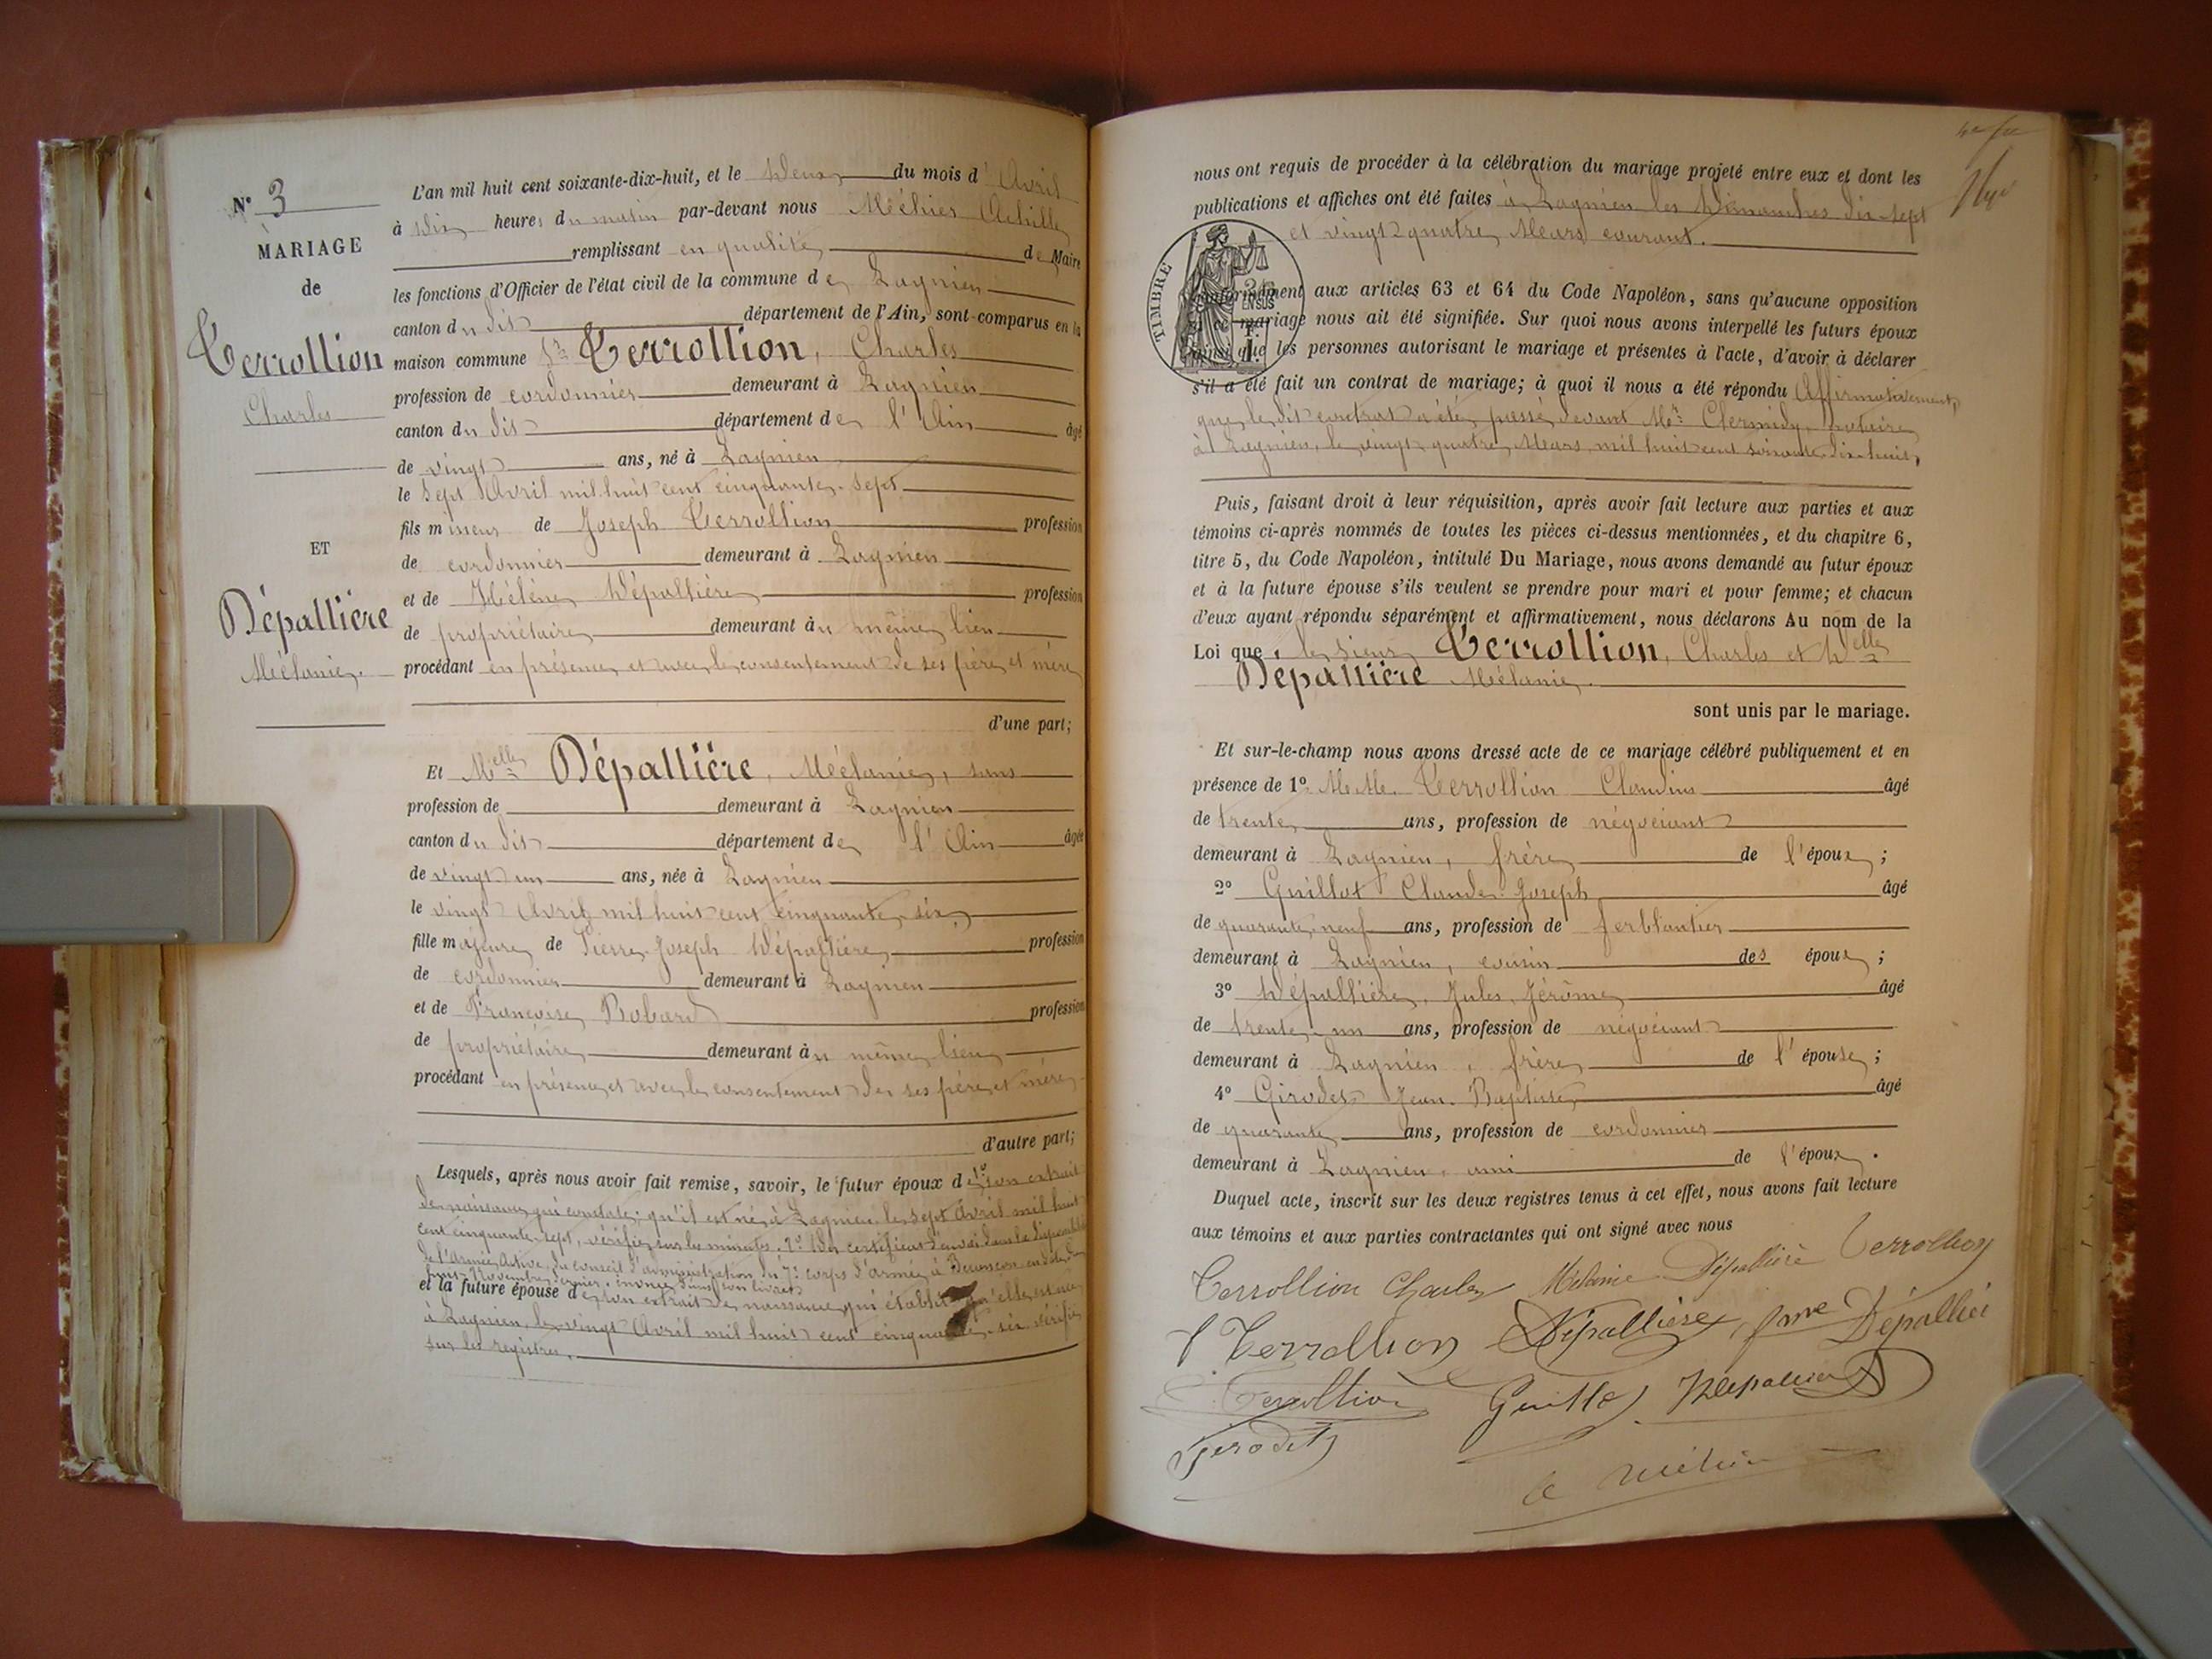 N° 3
MARIAGE
de
Terrollion
Charles
ET
Dépallière
Mélanie.
L'an mil huit cent soixante-dix-huit, et le Deux du mois d'Avril
à Dix heures du matin par-devant nous Méhier Achille
remplissant en qualité de Maire
les fonctions d'Officier de l'état civil de la commune de Lagnieu
canton du dit département de l'Ain, sont comparus en la
maison commune Sr Terrollion, Charles
profession de cordonnier demeurant à Lagnieu
canton du dit département de l'Ain âgé
de vingt ans, né à Lagnieu
le sept Avril mil huit cent cinquante-sept
fils mineur de Joseph Terrollion profession
de cordonnier demeurant à Lagnieu
et de Hélène Dépallière profession
de propriétaire demeurant au même lieu
procédant en présence et avec le consentement de ses père et mère
d'une part;
Et Melle Dépallière, Mélanie, sans
profession de demeurant à Lagnieu
canton du dit département de l'Ain âgée
de vingt un ans, née à Lagnieu
le vingt Avril mil huit cent cinquante six
fille majeure de Pierre Joseph Dépallière profession
de cordonnier demeurant à Lagnieu
et de Françoise Robard profession
de propriétaire demeurant au même lieu
procédant en présence et avec le consentement de ses père et mère
d'autre part;
Lesquels, après nous avoir fait remise, savoir, le futur époux de 1° son extrait
de naissance qui constate qu'il est né à Lagnieu le sept Avril mil huit
cent cinquante-sept, vérifié sur les minutes. 2° Du certificat d'envoi dans la
de l'Armée Active du conseil d'administration du 7e corps d'armée à Besançon en date du
huit Novembre dernier
et la future épouse de son extrait de naissance qui établit qu'elle est née
à Lagnieu, le vingt Avril mil huit cent cinquante-six vérifié
sur les registres.
nous ont requis de procéder à la célébration du mariage projeté entre eux et dont les
publications et affiches ont été faites à Lagnieu les Dimanches dix-sept
et vingt-quatre Mars courant.
TIMBRE
conformément aux articles 63 et 64 du Code Napoléon, sans qu'aucune opposition
à ce mariage nous ait été signifiée. Sur quoi nous avons interpellé les futurs époux
ainsi que les personnes autorisant le mariage et présentes à l'acte, d'avoir à déclarer
s'il a été fait un contrat de mariage; à quoi il nous a été répondu Affirmativement,
que le dit contrat a été passé devant Me Clermidy, notaire
à Lagnieu, le vingt quatre Mars mil huit cent soixante dix huit,
Puis, faisant droit à leur réquisition, après avoir fait lecture aux parties et aux
témoins ci-après nommés de toutes les pièces ci-dessus mentionnées, et du chapitre 6,
titre 5, du Code Napoléon, intitulé Du Mariage, nous avons demandé au futur époux
et à la future épouse s'ils veulent se prendre pour mari et pour femme; et chacun
d'eux ayant répondu séparément et affirmativement, nous déclarons Au nom de la
Loi que le sieur Terrollion, Charles et Delle
Dépallière Mélanie.
sont unis par le mariage.
Et sur-le-champ nous avons dressé acte de ce mariage célébré publiquement et en
présence de 1° M.M. Terrollion Claudius âgé
de trente ans, profession de négociant
demeurant à Lagnieu, frère de l'époux;
2° Guillot Claude Joseph âgé
de quarante neuf ans, profession de ferblantier
demeurant à Lagnieu, cousin des époux;
3° Dépallière, Jules, Jérôme âgé
de trente-un ans, profession de négociant
demeurant à Lagnieu, frère de l'épouse;
4° Girodet Jean Baptiste âgé
de quarante ans, profession de cordonnier
demeurant à Lagnieu, ami de l'époux.
Duquel acte, inscrit sur les deux registres tenus à cet effet, nous avons fait lecture
aux témoins et aux parties contractantes qui ont signé avec nous
Terrollion Charles Mélanie Dépallière Terrollion
Terrollion Dépallière fme Dépallier
Terrollion Guillot Dépallière
Girodet
A Méhier